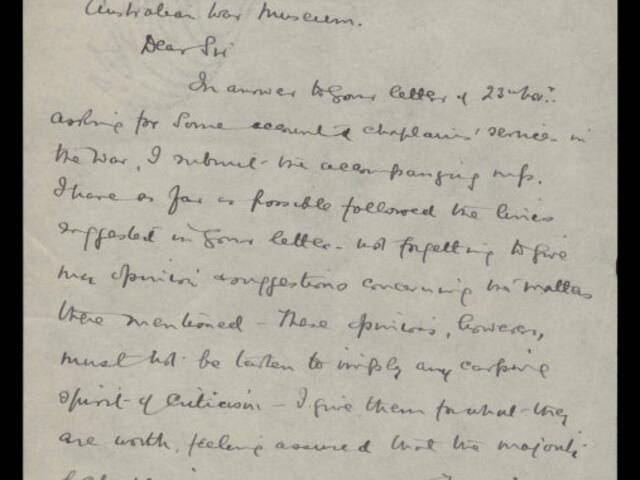 Australian War Museum.
Dear Sir
In answer to your letter of 23rd Nov.
asking for some account of chaplains' services in
the War, I submit the accompanying mss.
I have as far as possible followed the lines
suggested in your letter - not forgetting to give
my opinion & suggestions concerning the matters
there mentioned - These opinions, however,
must not be taken to imply any carping
spirit of criticism - I give them for what they
are worth, feeling assured that the majority